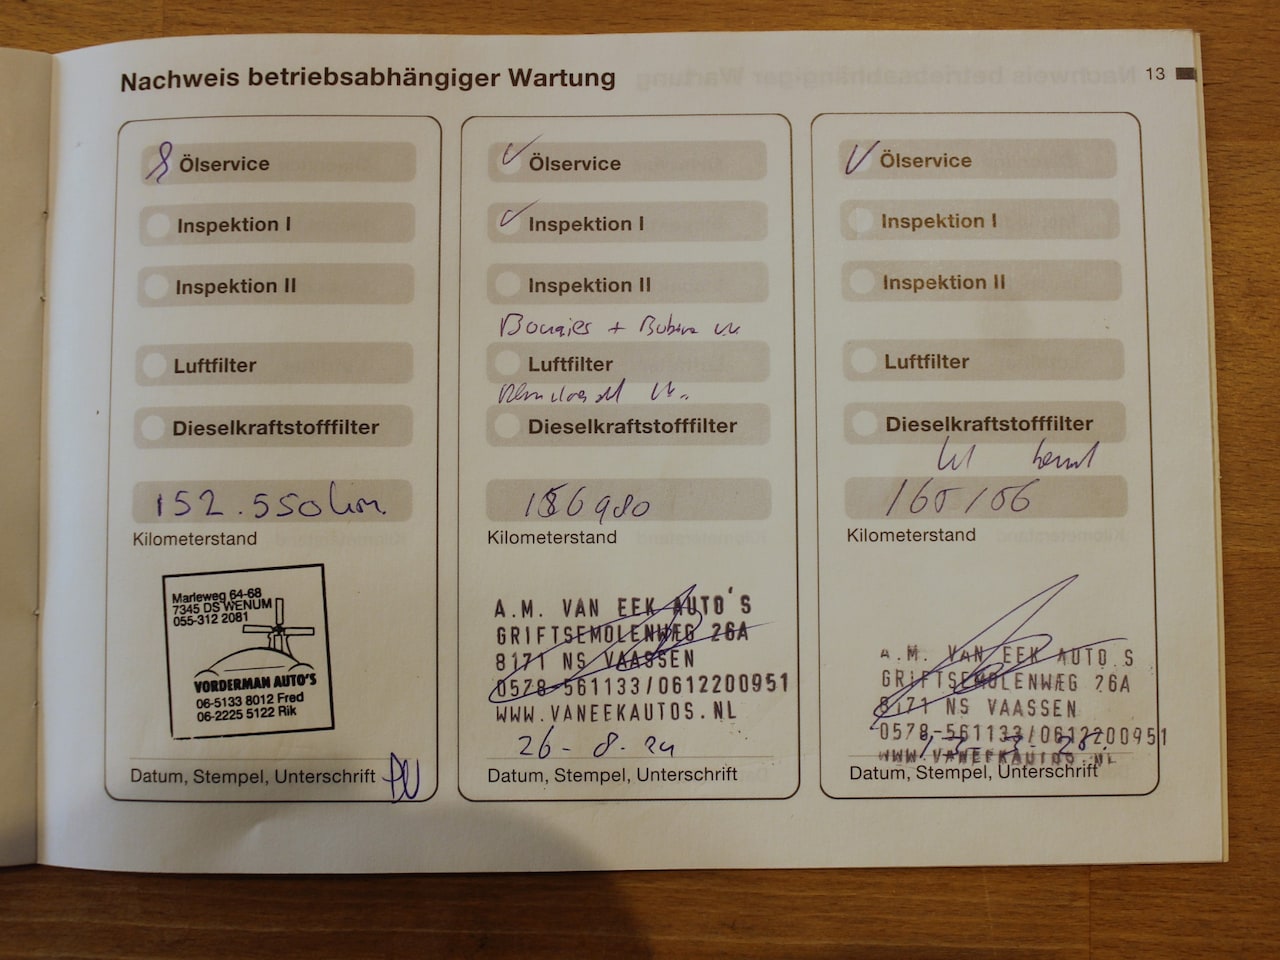 Nachweis betriebsabhängiger Wartung
13
Ölservice
Inspektion I
Inspektion II
Luftfilter
Dieselkraftstofffilter
152.550 km.
Kilometerstand
Marleweg 64-68
7345 DS WENUM
055-312 2081
VORDERMAN AUTO'S
06-5133 8012 Fred
06-2225 5122 Rik
Datum, Stempel, Unterschrift
Ölservice
Inspektion I
Inspektion II
Bougies +
Luftfilter
Dieselkraftstofffilter
Kilometerstand
A.M. VAN EEK AUTO'S
GRIFTSEMOLENWEG 26A
8171 NS VAASSEN
0578-561133/0612200951
WWW.VANEEKAUTOS.NL
26-8-24
Datum, Stempel, Unterschrift
Ölservice
Inspektion I
Inspektion II
Luftfilter
Dieselkraftstofffilter
Kilometerstand
A.M. VAN EEK AUTO'S
GRIFTSEMOLENWEG 26A
8171 NS VAASSEN
0578-561133/0612200951
WWW.VANEEKAUTOS.NL
Datum, Stempel, Unterschrift